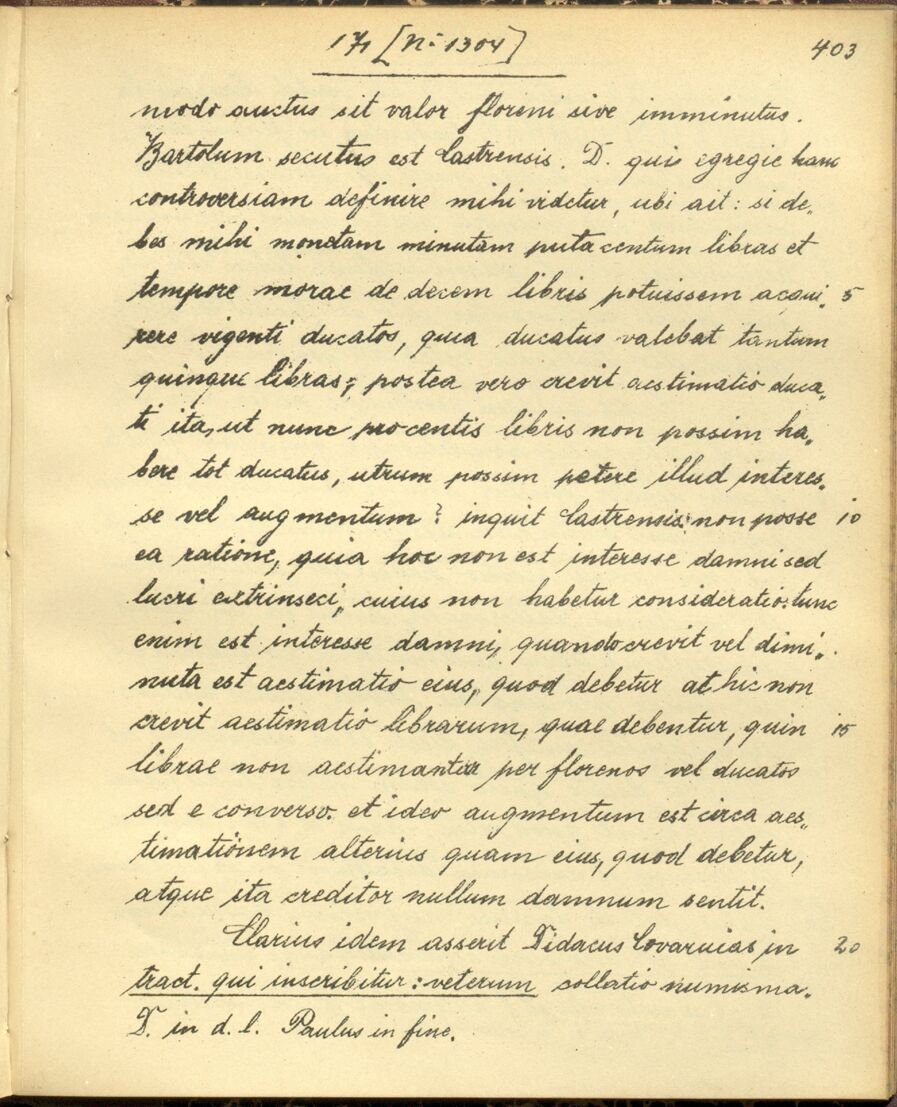 171 [N: 1304]
403
modo auctus sit valor floreni sive imminutus.
Bartolum secutus est Castrensis. D. quis egregie hanc
controversiam definire mihi videtur, ubi ait: si de„
bes mihi monetam minutam puta centum libras et
tempore morae de decem libris potuissem acqui„ 5
rere vigenti ducatos, quia ducatus valebat tantum
quinque libras; postea vero crevit aestimatio duca„
ti ita, ut nunc pro centis libris non possim ha„
bere tot ducatus, utrum possim petere illud interes„
se vel augmentum? inquit Castrensis: non posse 10
ea ratione, quia hoc non est interesse damni sed
lucri extrinseci, cuius non habetur consideratio: tunc
enim est interesse damni, quando crevit vel dimi„
nuta est aestimatio eius, quod debetur at hic non
crevit aestimatio librarum, quae debentur, quin 15
librae non aestimantur per florenos vel ducatos
sed e converso. et ideo augmentum est circa aes„
timationem alterius quam eius, quod debetur,
atque ita creditor nullum damnum sentit.
Clarius idem asserit Didacus Covaruias in 20
tract. qui inscribitur: veterum collatio numisma.
D. in d. l. Paulus in fine.